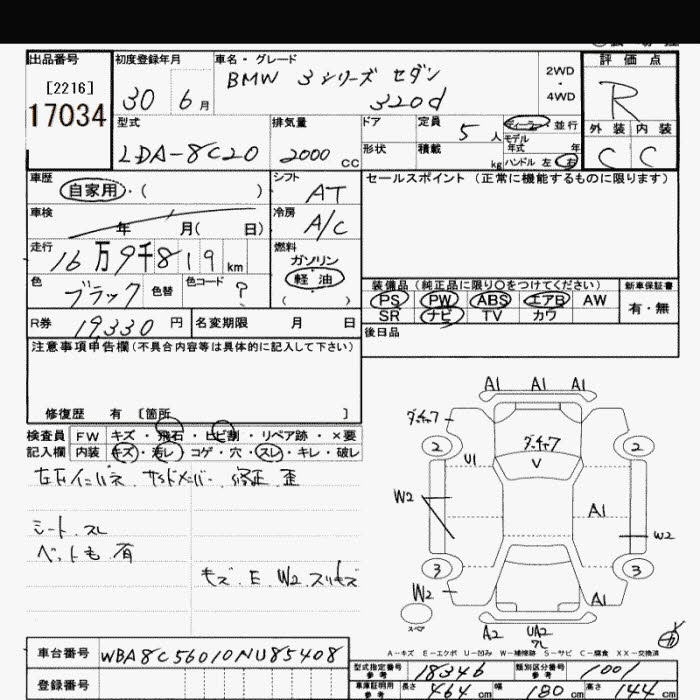 出品番号
[2216]
17034
初度登録年月
30 6月
車名・グレード
BMW 3シリーズ セダン
320d
2WD
・
4WD
評価点
R
外装 内装
C C
型式
LDA-8C20
排気量
2000 cc
ドア
定員 5人
形状
積載 kg
ディーラー 並行
モデル年式 年
ハンドル 左 右
車歴
自家用・( )
シフト
AT
セールスポイント (正常に機能するものに限ります)
車検
年 月( 日)
冷房
A/C
走行
16万9千819km
燃料
ガソリン
軽油
( )
色
ブラック
色替
色コード
?
装備品(純正品に限り○をつけてください)
新車保証書
PS PW ABS エアB AW
有・無
SR ナビ TV カワ
R券 19330円
名変期限 月 日
後日品
注意事項申告欄(不具合内容等は具体的に記入して下さい)
修復歴 有 [箇所 ]
検査員 FW キズ・飛石・ヒビ割・リペア跡・×要
記入欄 内装 キズ・汚レ・コゲ・穴・スレ・キレ・破レ
サイドメンバー 修正 歪
シート スレ
ペットも 有
キズ・E W2 スリキズ
A1 A1 A1
ダ.チャク7
2 2
ダ.チャク7
U1 V
W2 A1
W2
3 3
W2 A1
スペア
A2 UA2
A-キズ E-エクボ U-凹み W-補修跡 S-サビ C-腐食 XX-交換済
車台番号 WBA8C56010NU85408
登録番号
型式指定番号
参考
18346
類別区分番号
参考
1001
車庫証明用
参考
長さ 464cm 幅 180cm 高さ 144cm